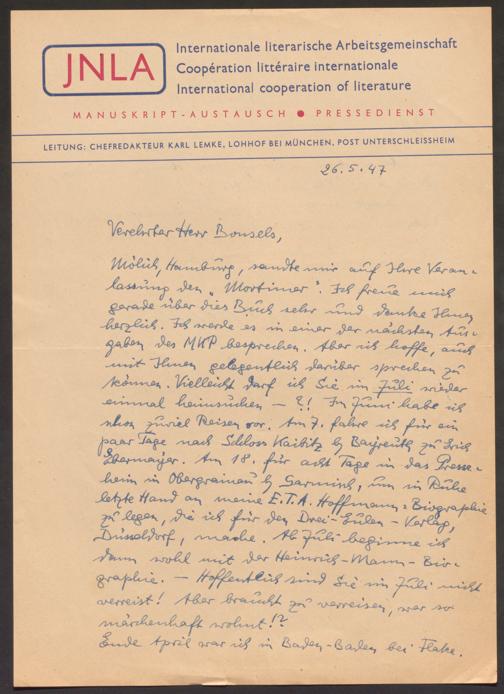 JNLA
Internationale literarische Arbeitsgemeinschaft
Coopération littéraire internationale
International cooperation of literature
MANUSKRIPT-AUSTAUSCH ● PRESSEDIENST
LEITUNG: CHEFREDAKTEUR KARL LEMKE, LOHHOF BEI MÜNCHEN, POST UNTERSCHLEISSHEIM
26.5.47
Verehrter Herr Bonsels,
Mölich, Hamburg, sandte mir auf Ihre Veran-
lassung den „Mortimer". Ich freue mich
gerade über dies Buch sehr und danke Ihnen
herzlich. Ich werde es in einer der nächsten Aus-
gaben des MKP besprechen. Aber ich hoffe, auch
mit Ihnen gelegentlich darüber sprechen zu
können. Vielleicht darf ich Sie im Juli wieder
einmal heimsuchen – ?! Im Juni habe ich
schon zuviel Reisen vor. Am 7. fahre ich für ein
paar Tage nach Schloss Kaibitz b/ Bayreuth zu Erich
Ebermayer. Am 18. für acht Tage in das Presse-
heim in Obergrainau b/ Garmisch, um in Ruhe
letzte Hand an meine E.T.A. Hoffmann-Biographie
zu legen, die ich für den Drei-Eulen-Verlag,
Düsseldorf, mache. Ab Juli beginne ich
dann wohl mit der Heinrich-Mann-Bio-
graphie. – Hoffentlich sind Sie im Juli nicht
verreist! Aber braucht zu verreisen, wer so
märchenhaft wohnt!?
Ende April war ich in Baden-Baden bei Flake.